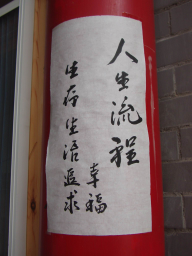 人生流程
生存生活追求
幸福